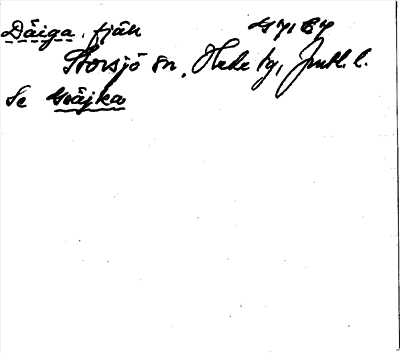 Dåiga, fjäll
Storsjö sn, Hede tg, Jmtl. l.
Se Gråjka